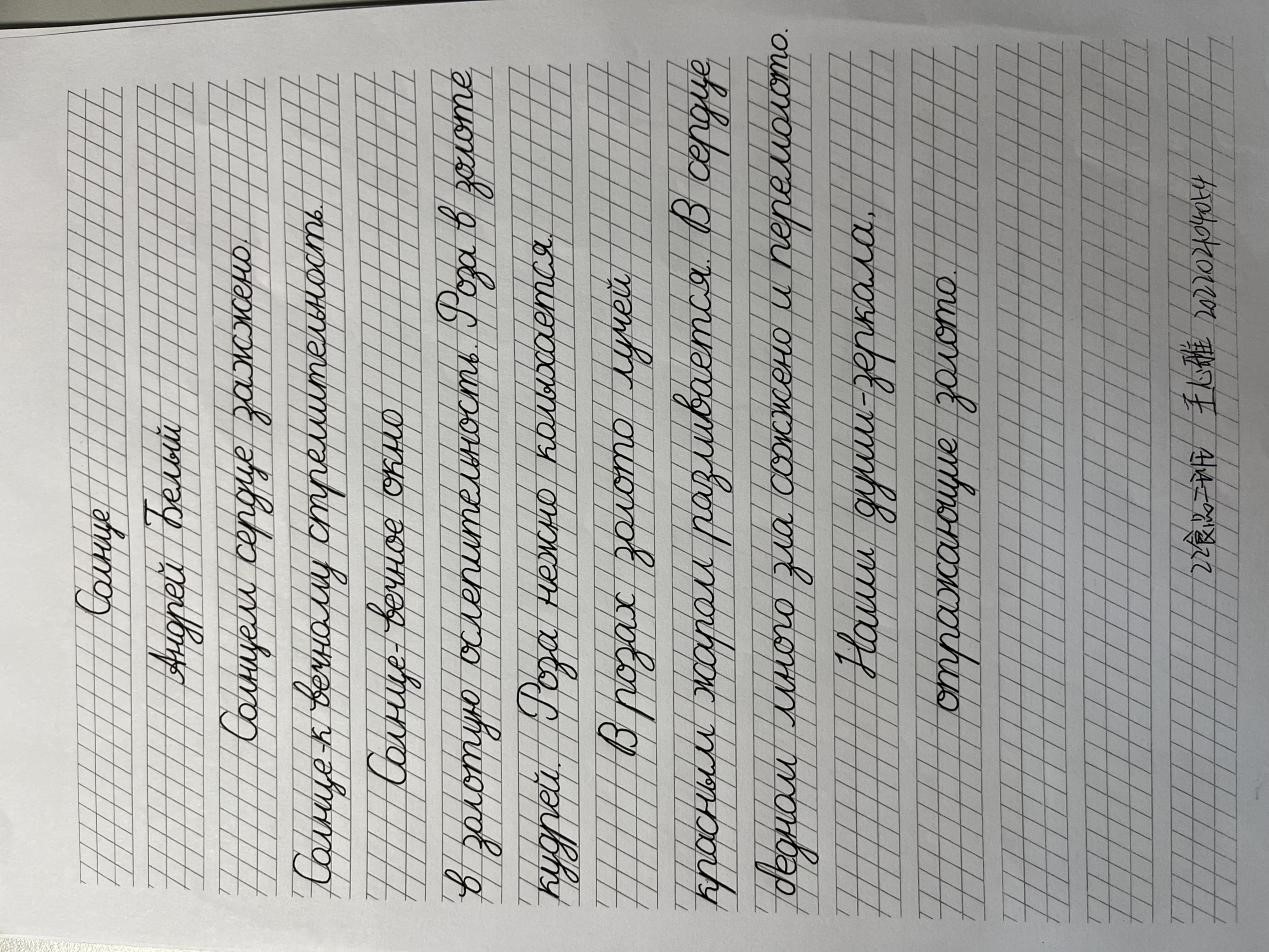 Солнце
Андрей Белый
Солнцем сердце зажжено.
Солнце-к вечному стремительность.
Солнце-вечное окно
в золотую ослепительность. Роза в золоте
кудрей. Роза нежно колыхается.
В розах золото лучей
красным жаром разливается. В сердце
бедном много зла сожжено и перемолото.
Наши души-зеркала,
отражающие золото.
22食品二班 王心雅 2022404054